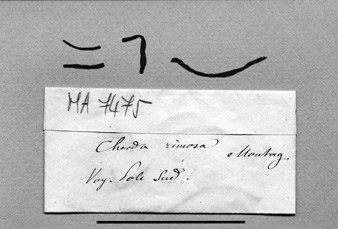 MA 7475
Chorda rimosa Montag.
Voy. Pole Sud.